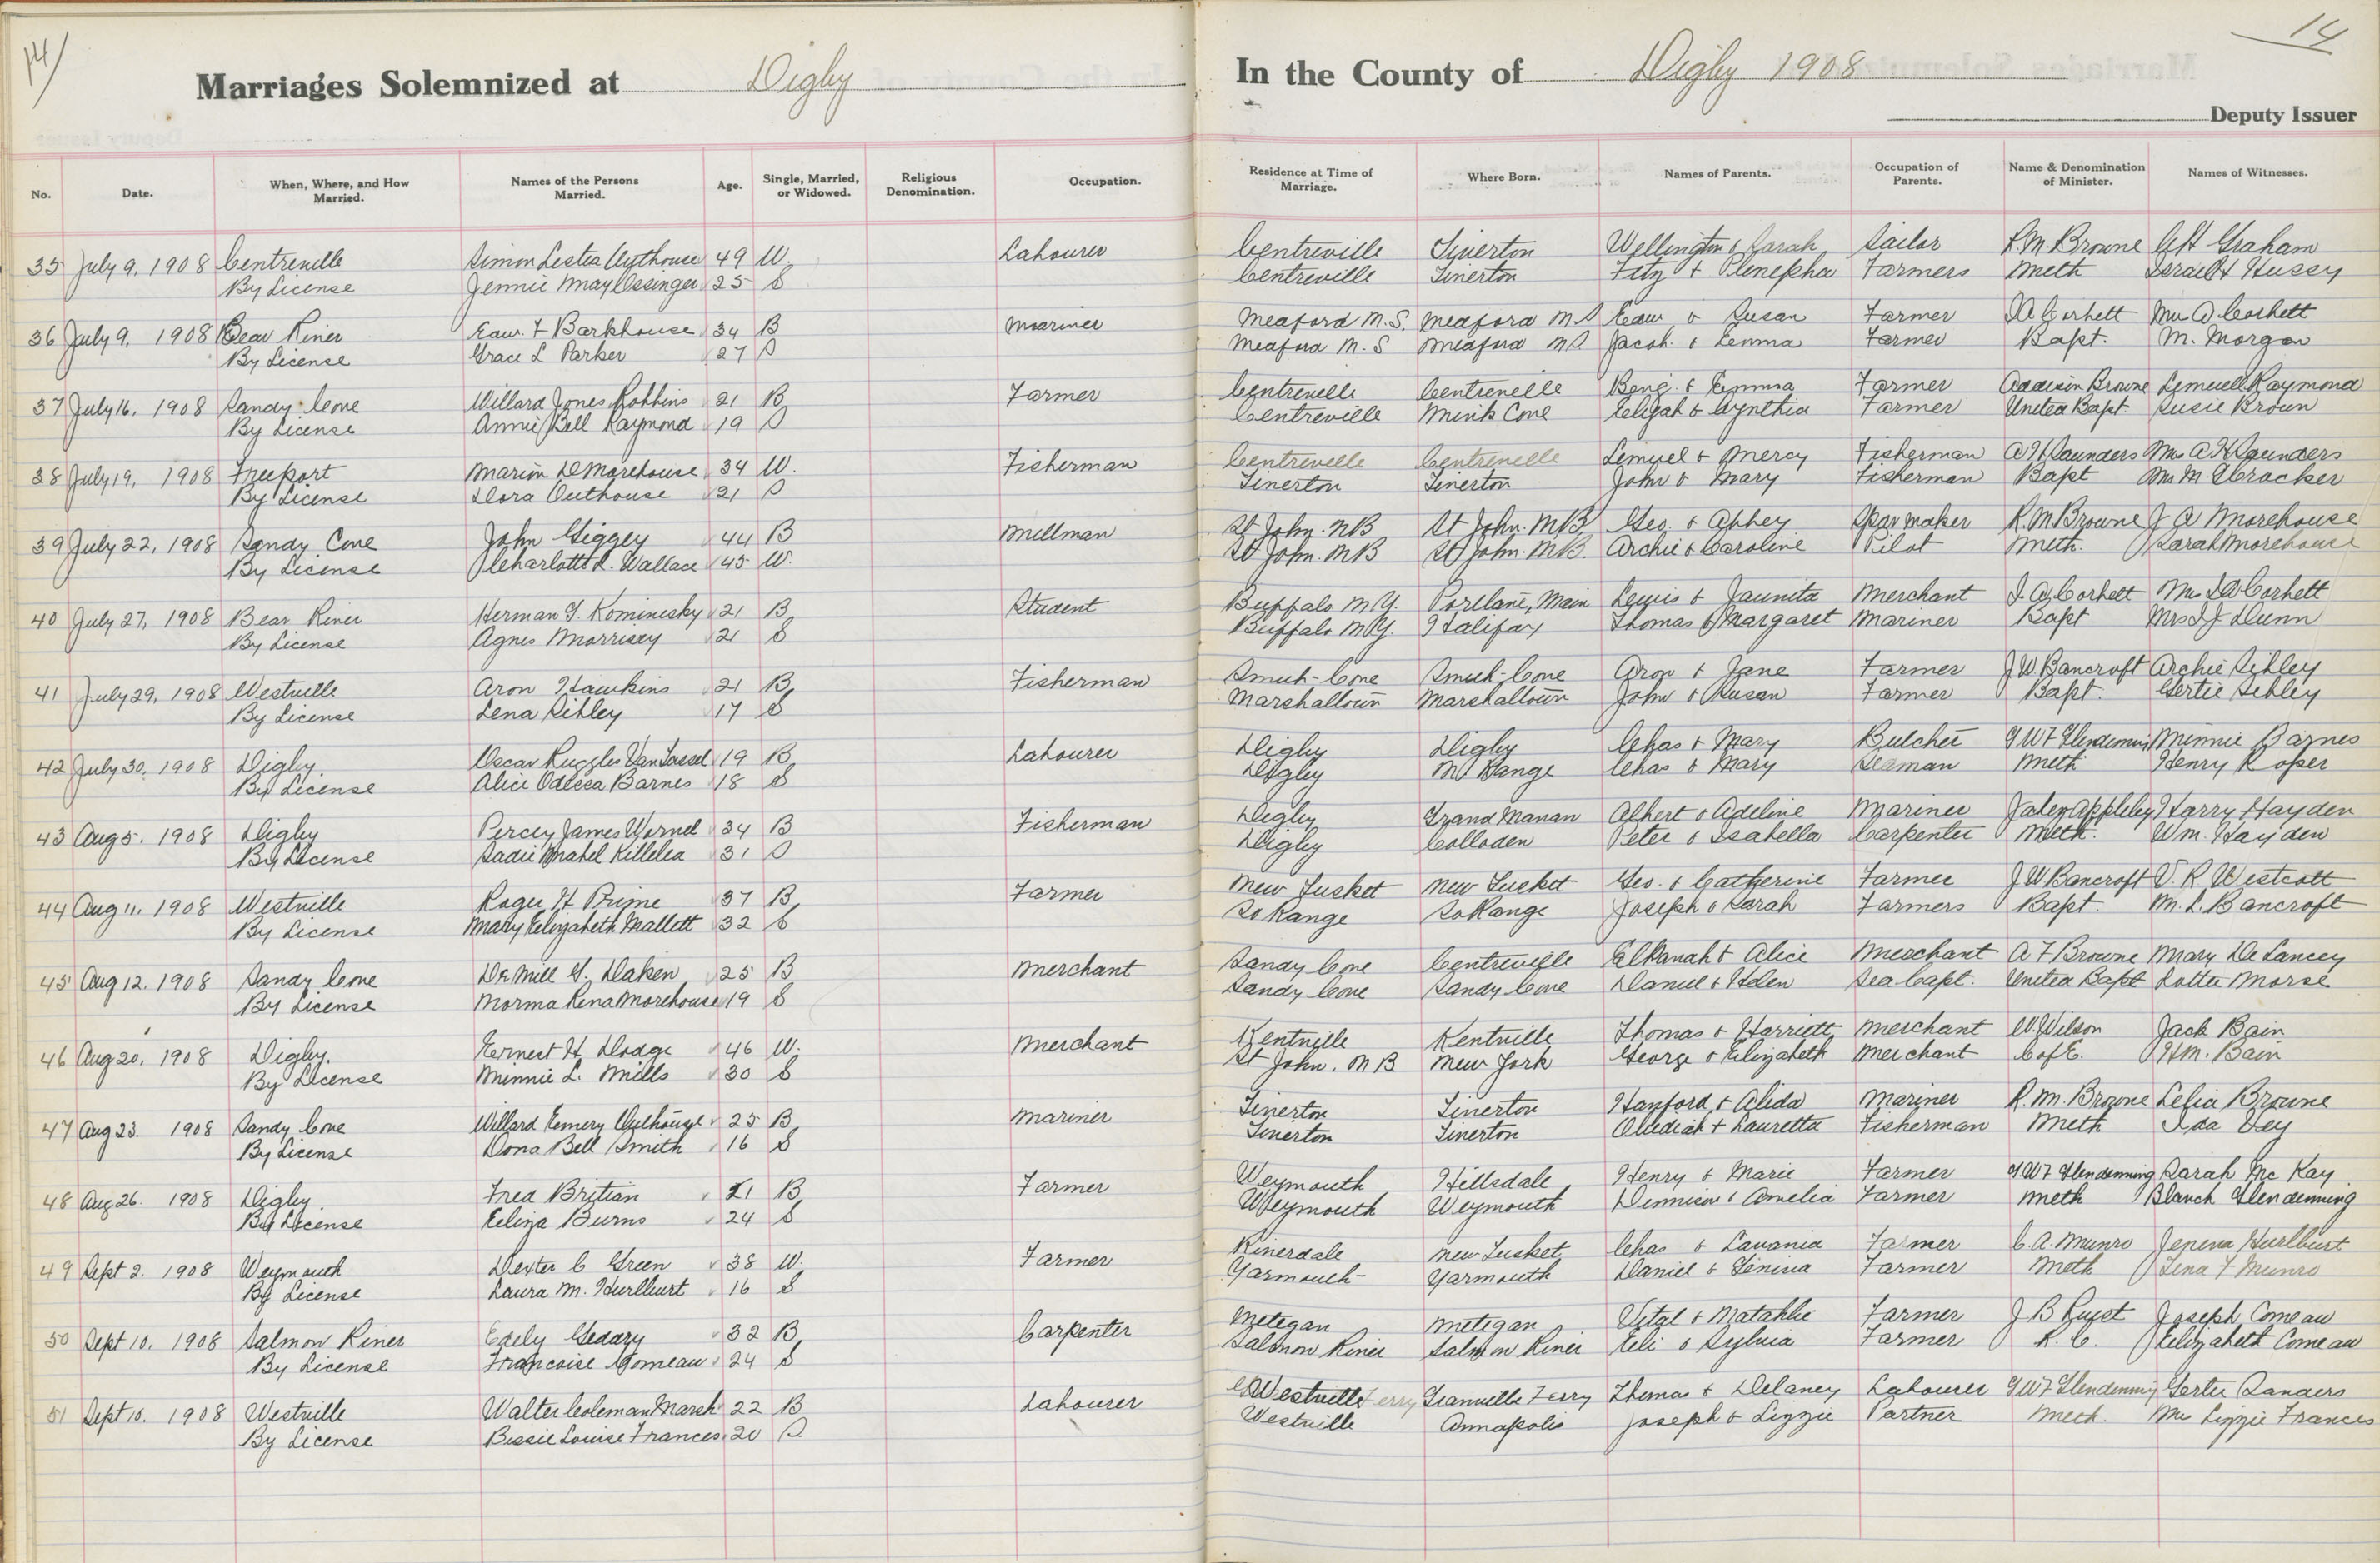 14/
14
Marriages Solemnized at Digby
In the County of Digby 1908
Deputy Issuer
No. Date. When, Where, and How Married. Names of the Persons Married. Age. Single, Married, or Widowed. Religious Denomination. Occupation. Residence at Time of Marriage. Where Born. Names of Parents. Occupation of Parents. Name & Denomination of Minister. Names of Witnesses.
35 July 9, 1908 Centreville Simon Lester Outhouse 49 W. Labourer Centreville Tiverton Wellington & Sarah Sailor R.M. Browne Graham
By License Jennie May Ossinger 25 S Centreville Tiverton Fitz & Farmers Meth Israel H Hussy
36 July 9, 1908 Bear River Edw. F Barkhouse 34 B Mariner Meaford N.S. Meaford N S Edw & Susan Farmer I A Corbett Mrs A Corbett
By License Grace L Parker 27 S Meaford N.S Meaford N S Jacob & Lenma Farmer Bapt. M. Morgan
37 July 16, 1908 Sandy Cove Willard Jones Robbins 21 B Farmer Centreville Centreville Benj. & Emma Farmer Addison Browne Lemuell Raymond
By License Annie Bell Raymond 19 S Centreville Mink Cove Elijah & Cynthia Farmer United Bapt. Susie Brown
38 July 19, 1908 Freeport Marion D Morehouse 34 W. Fisherman Centreville Centreville Limuel & Mercy Fisherman A H Saunders Mrs A H Saunders
By License Dora Outhouse 21 S Tiverton Tiverton John & Mary Fisherman Bapt Mrs M. G Cracker
39 July 22, 1908 Sandy Cove John Giggey 44 B Millman St John. N B St John. N B Geo. & Abbey Spar maker R.M Browne J A Morehouse
By License Charlotte L. Wallace 45 W. St John. N B St John. N B. Archie & Caroline Pilot Meth. Sarah Morehouse
40 July 27, 1908 Bear River Herman G. Kominisky 21 B Student Buffalo N.Y. Portland, Main Lewis & Jaunita Merchant I. A. Corbett Mrs I A Corbett
By License Agnes Morrisey 21 S Buffalo N.Y. Halifax Thomas & Margaret Mariner Bapt Mrs I J Dunn
41 July 29, 1908 Westville Aron Hawkins 21 B Fisherman Smith-Cove Smith-Cove Aron & Jane Farmer J W Bancroft Archie Sibley
By License Lena Sibley 17 S Marshalltown Marshalltown John & Susan Farmer Bapt. Gertie Sibley
42 July 30, 1908 Digby. Oscar Ruggles VanTassel 19 B Labourer Digby Digby Chas & Mary Butcher G W F Glendenning Minnie Barnes
By License Alice Odessa Barnes 18 S Digby N Range Chas & Mary Seaman Meth Henry Roper
43 Aug 5. 1908 Digby Percey James Wornel 34 B Fisherman Digby Grand Manan Albert & Adeline Mariner John Appleby Harry Hayden
By License Sadie Mabel Killelea 31 S Digby Colloden Peter & Isabella Carpenter Meth. Wm. Hayden
44 Aug 11. 1908 Westville Roger H Prime 37 B Farmer New Tusket New Tusket Geo. & Catherine Farmer J W Bancroft V. R Westcott
By License Mary Elizabeth Mallett 32 S So Range So Range Joseph & Sarah Farmers Bapt. M. L. Bancroft
45 Aug 12. 1908 Sandy Cove De Mill G. Daken 25 B Merchant Sandy Cove Centreville Elkanah & Alice Merchant A F Browne Mary De Lancey
By License Norma Rena Morehouse 19 S Sandy Cove Sandy Cove Daniel & Helen Sea Capt. United Bapt Lottie Morse
46 Aug 20, 1908 Digby. Ernest H Dodge 46 W. Merchant Kentville Kentville Thomas & Harriett Merchant W. Wilson Jack Bain
By License Minnie L. Mills 30 S St John. N B New York George & Elizabeth Merchant C of E. H M. Bain
47 Aug 23. 1908 Sandy Cove Willard Emery Outhouse 25 B Mariner Tiverton Tiverton Hanford & Alida Mariner R. M. Browne Lelia Browne
By License Dona Bell Smith 16 S Tiverton Tiverton Obediah & Lauretta Fisherman Meth Ida Vey
48 Aug 26. 1908 Digby Fred Britian 21 B Farmer Weymouth Hillsdale Henry & Marie Farmer G W F Glendenning Sarah Mc Kay
By License Eliza Burns 24 S Weymouth Weymouth Dennison & Amelia Farmer Meth Blanch Glendenning
49 Sept 2. 1908 Weymouth Dexter C Green 38 W. Farmer Riverdale New Tusket Chas & Lavania Farmer C. A. Munro Jeneva Hurlburt
By License Laura M. Hurlburt 16 S Yarmouth Yarmouth Daniel & Farmer Meth Lena F Munro
50 Sept 10. 1908 Salmon River Edely Geddry 32 B Carpenter Metegan Metegan Vital & Matahlie Farmer J. B Joseph Comeau
By License Francoise Comeau 24 S Salmon River Salmon River Eli & Sylvia Farmer R. C. Elizabeth Comeau
51 Sept 10. 1908 Westville Walter Coleman Marsh 22 B Labourer Westville Ferry Granville Ferry Thomas & Delaney Labourer G W F Glendenning Gertie Sanders
By License Bessie Louise Frances 20 S. Westville Annapolis Joseph & Lizzie Partner Meth. Mrs Lizzie Frances